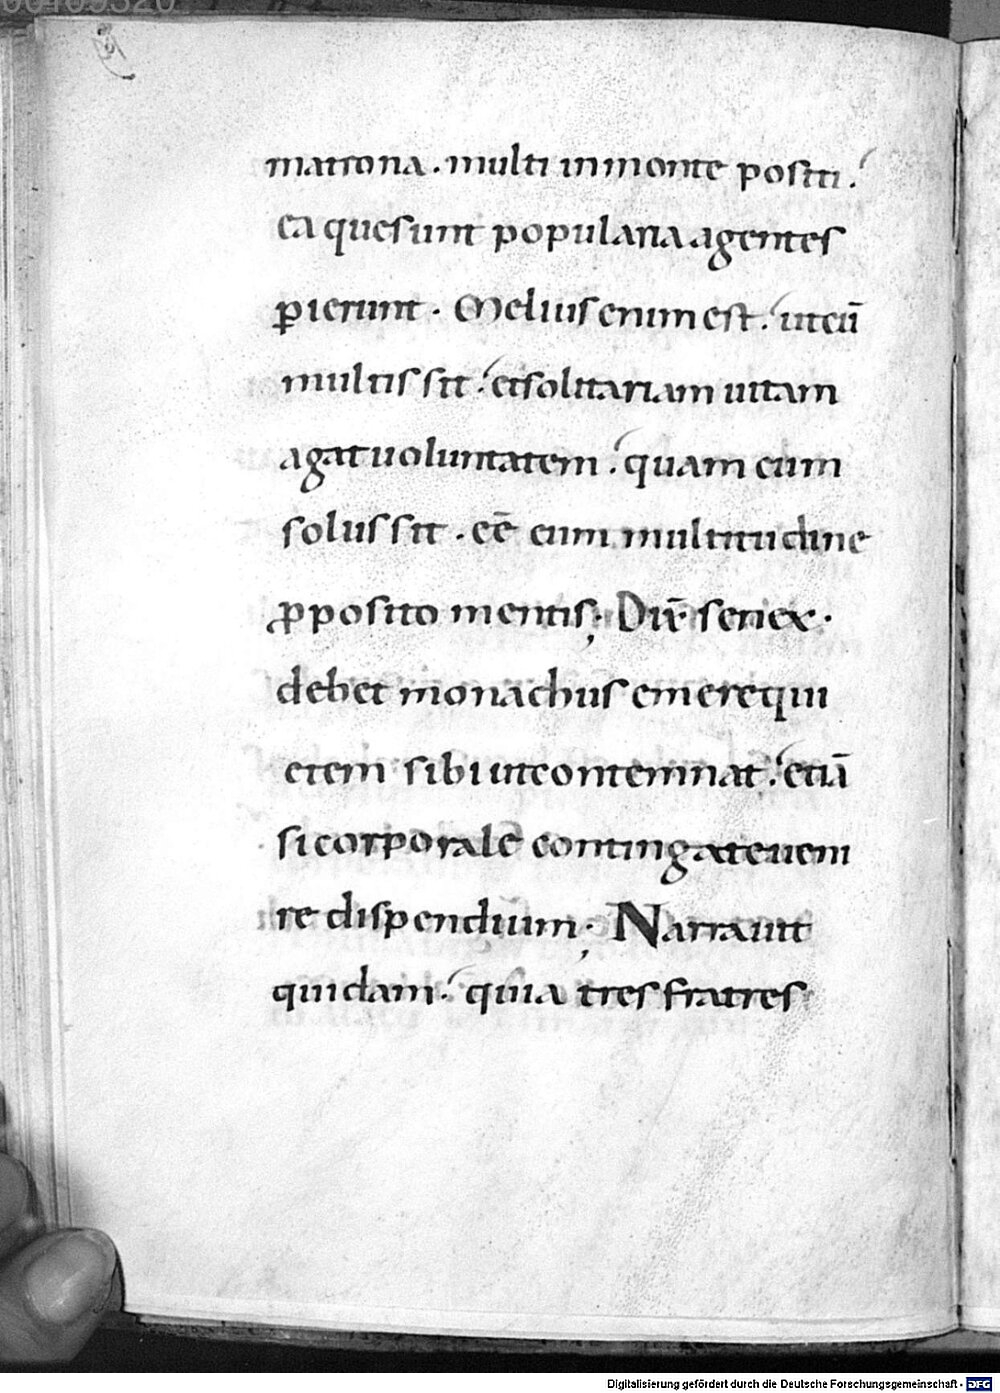 matrona. multi in monte positi.
ea que sunt popularia agentes
ꝑierunt. Melius enim est. ut cū
multis sit. et solitariam uitam
agat uoluntatem. quam cum
solus sit. eē cum multitudine
ꝓposito mentis; Dix̄ senex.
debet monachus emere qui
etem sibi ut contemnat. etiā
si corporale contingat eueni
re dispendium; Narrauit
quidam. quia tres fratres
Digitalisierung gefördert durch die Deutsche Forschungsgemeinschaft - DFG